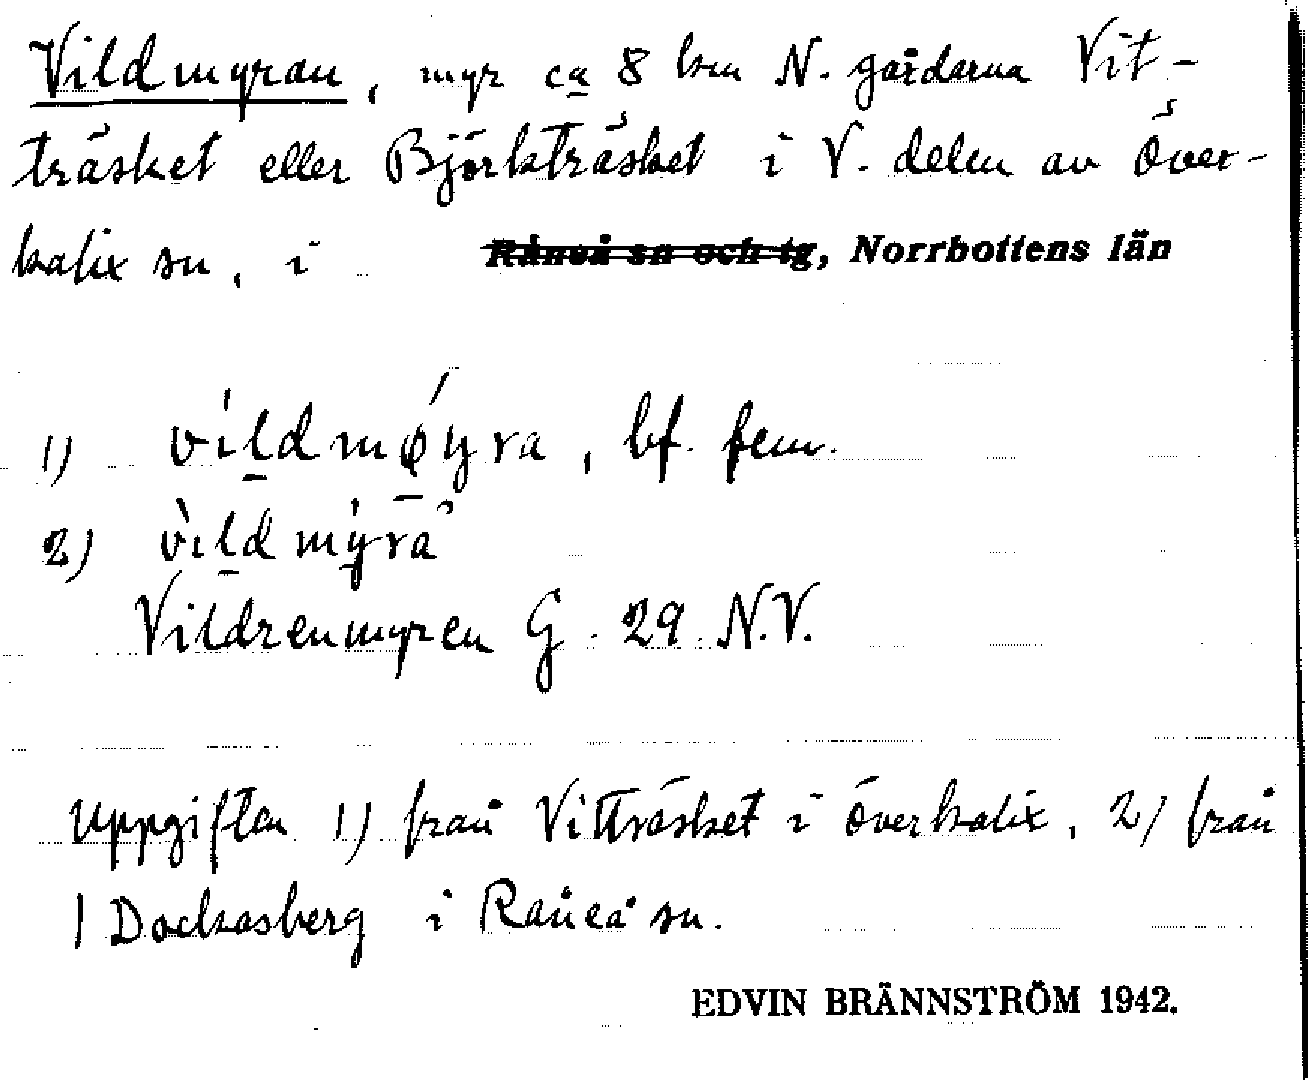 Vildmyran, myr ca 8 km N. gårdarna Vit-
träsket eller Björkträsket i V. delen av Över-
kalix sn, i Råneå sn och tg, Norrbottens län
1) víldmǿyra, bf. fem.
2) vìldmýrä
Vildrenmyren G. 29 N.V.
Uppgiften 1) från Vitträsket i Överkalix, 2) från
| Dockasberg i Råneå sn.
EDVIN BRÄNNSTRÖM 1942.